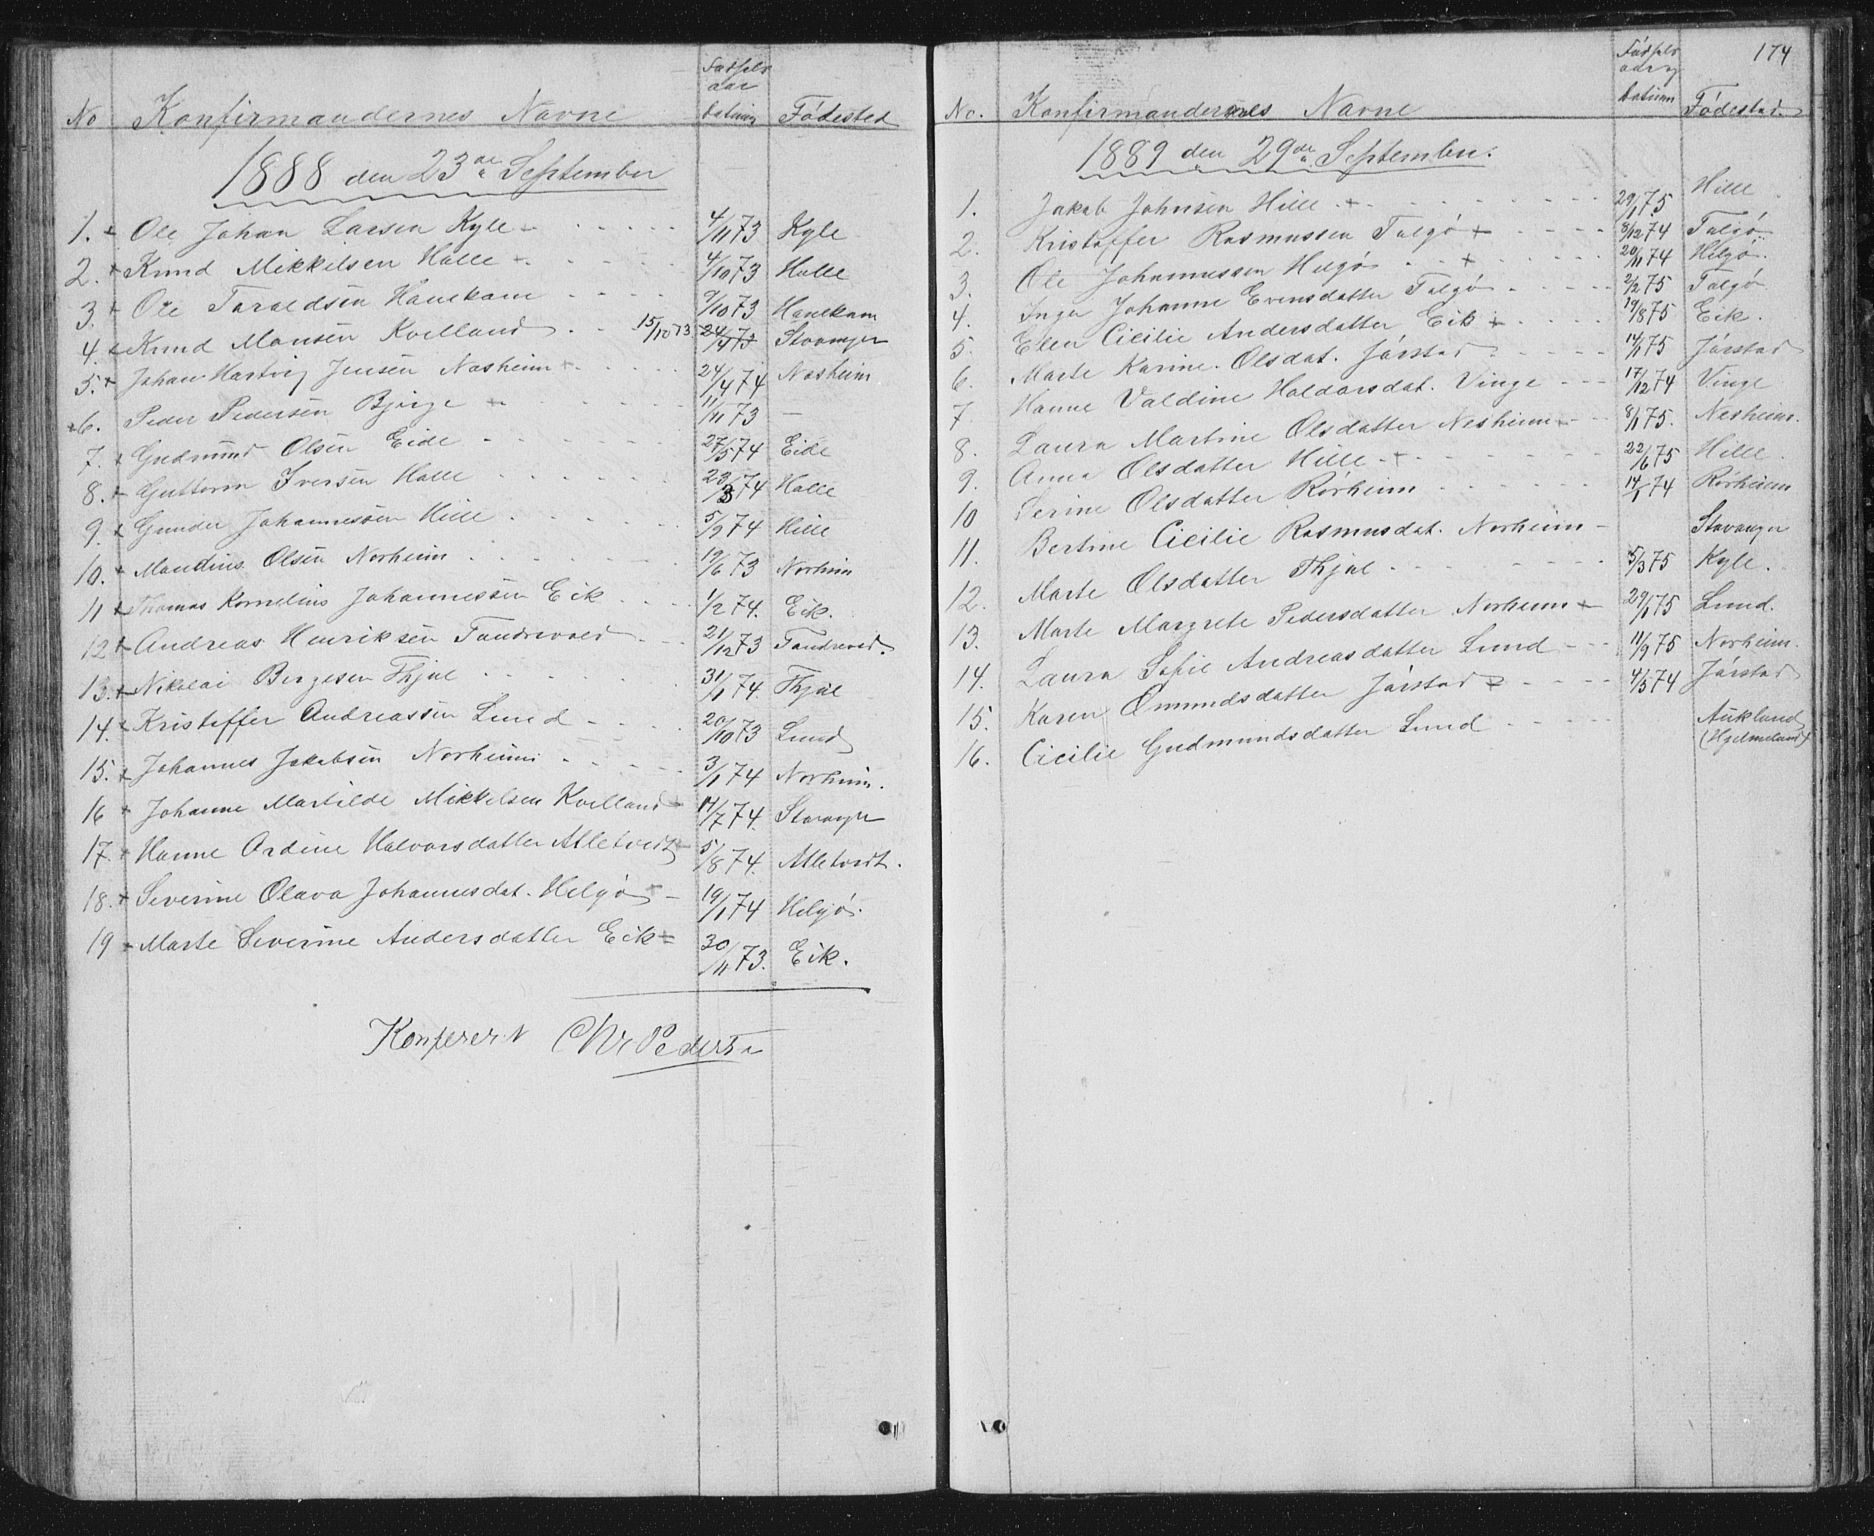 No Konfirmandernes Navne Fødsels aar datum Fødested
1888 den 23de September
1. + Ole Johan Larsen Kyle 4/11 73 Kyle
2. + Knud Mikkelsen Halle 4/10 73 Halle
3. + Ole Taraldsen Hanekam 9/10 73 Hanekam
4. + Knud Monsen Kvelland 15/10 73 24/4 73 Stavanger
5. + Johan Hartvig Jensen Nesheim 24/4 74 Nesheim
+ 6. Peder Pedersen Bjørge 11/11 73 —
7. + Gudmund Olsen Eide 27/5 74 Eide
8. + Guttorm Iversen Halle 23/3 74 Halle
9. + Gunder Johannessen Hille 5/9 74 Hille
10. + Maudius Olsen Norheim 19/6 73 Norheim
11 + Thomas Kornelius Johannessen Eik 1/2 74. Eik.
12 + Andreas Henriksen Tandrevold 21/12 73 Tandrevold.
13. + Nikolai Bergesen Thjul 31/1 74. Thjul
14. + Kristoffer Andreassen Lund 20/10 73 Lund
15. + Johannes Jakobsen Norheim 3/1 74 Norheim.
16 + Johanne Martilde Mikkelsen Kvelland 14/7 74. Stavanger
17. + Hanne Ordine Halvorsdatter Atletvedt 5/8 74. Atletvedt.
18. + Severine Olava Johannesdat. Helgø 19/1 74 Helgø.
19 - Marte Severine Andersdatter Eik 30/11 73. Eik.
Konferert Chr Pedersen
174
No. Konfirmandernes Navne Fødsels aar og datum Fødested
1889 den 29de September.
1. Jakob Johnsen Hille 29/1 75 Hille
2. Kristoffer Rasmussen Talgø 8/12 74 Talgø
3. Ole Johannessen Helgø 20/11 74 Helgø.
4. Inger Johanne Evensdatter Talgø 2/2 75 Talgø
5. Elen Cicilie Andersdatter Eik 19/8 75 Eik.
6. Marte Karine Olsdat. Jørstad 14/1 75 Jørstad
7. Hanne Valdine Haldorsdat. Vinge 17/12 74 Vinge
8. Laura Martine Olsdatter Nesheim 8/1 75. Nesheim.
9. Anna Olsdatter Hille 22/6 75 Hille
10 Serine Olsdatter Rørheim 14/1 74 Rørheim
11. Bertine Cicilie Rasmusdat. Norheim Stavanger
12. Marte Olsdatter Thjul 5/3 75 Kyle.
13. Marte Margrete Pedersdatter Norheim 29/1 75 Lund.
14. Laura Sofie Andreasdatter Lund 11/9 75 Norheim.
15. Karen Omundsdatter Jørstad 4/5 74 Jørstad
16. Cicilie Gudmundsdatter Lund Aukland (Hjelmeland)